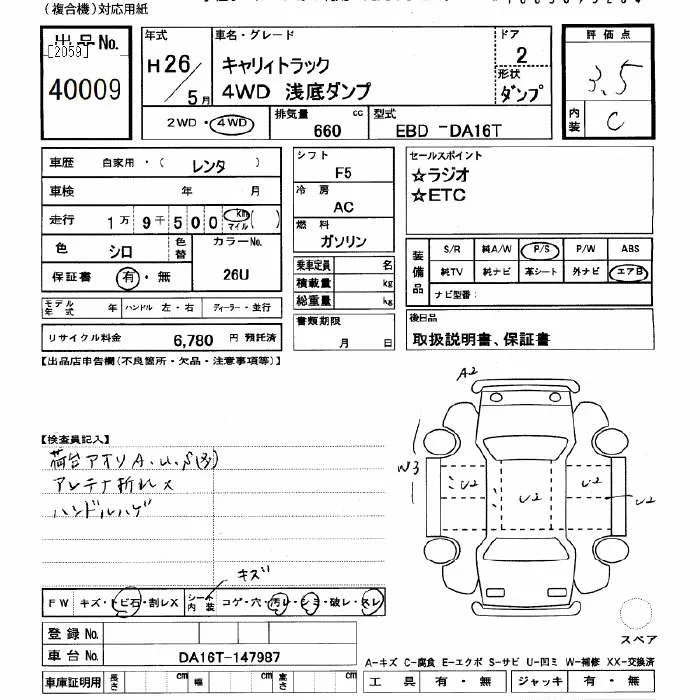 (複合機)対応用紙
出品No. [2059] 40009
年式 H26/5月
車名・グレード キャリイトラック 4WD 浅底ダンプ
ドア 2
形状 ダンプ
評価点 3.5
内装 C
2WD・4WD 排気量 660 cc 型式 EBD -DA16T
車歴 自家用・( レンタ )
車検 年 月
走行 1万 9千 500 km マイル ( )
色 シロ 色替 カラーNo. 26U
保証書 有・無
モデル年式 年 ハンドル 左・右 ディーラー・並行
リサイクル料金 6,780 円 預託済
シフト F5
冷房 AC
燃料 ガソリン
乗車定員 名
積載量 kg
総重量 kg
書類期限 月 日
セールスポイント
☆ラジオ
☆ETC
装備品 S/R 純A/W P/S P/W ABS
純TV 純ナビ 革シート 外ナビ エアB
ナビ型番:
後日品
取扱説明書、保証書
【出品店申告欄(不良箇所・欠品・注意事項等)】
【検査員記入】
荷台アオリ A.U.S(多)
アンテナ折れ X
ハンドルハゲ
キズ
FW キズ・トビ石・割レX シート内装 コゲ・穴・汚レ・シミ・破レ・スレ
登録No.
車台No. DA16T-147987
車庫証明用 長さ cm 幅 cm 高さ cm
A2
W3
U2
U2
U2
U2
スペア
A-キズ C-腐食 E-エクボ S-サビ U-凹ミ W-補修 XX-交換済
工具 有・無 ジャッキ 有・無